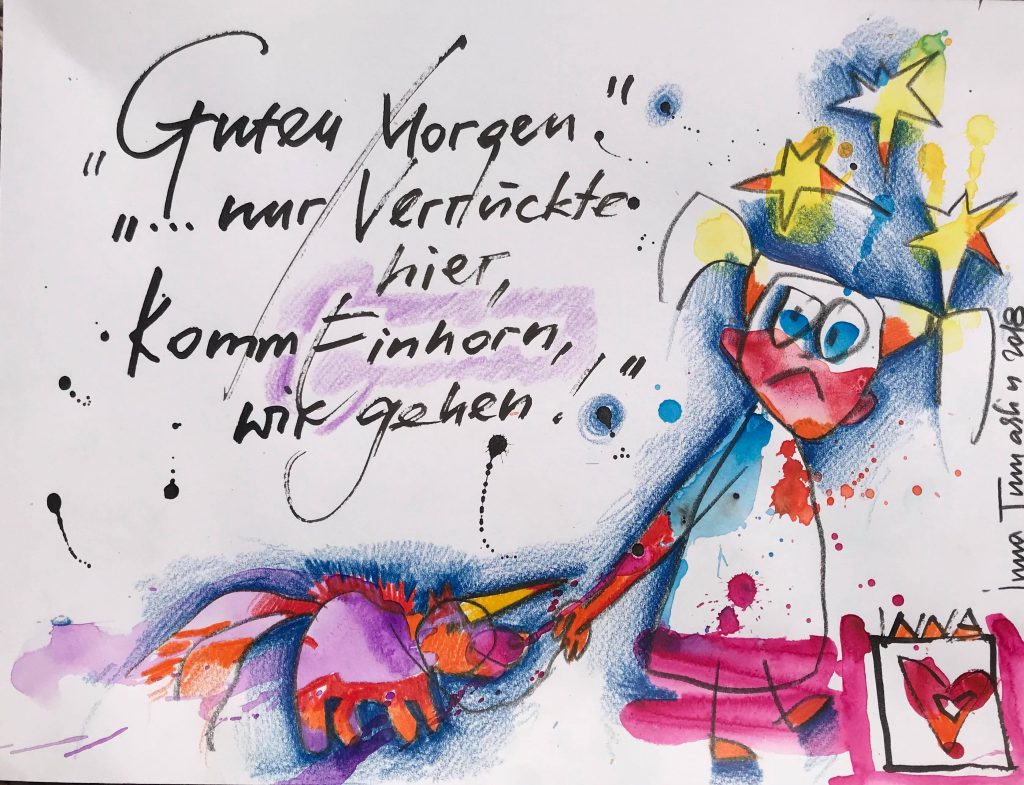 „Guten Morgen."
„... nur Verrückte
hier,
Komm Einhorn,
wir gehen."
Inna Tumashin 2018
INNA